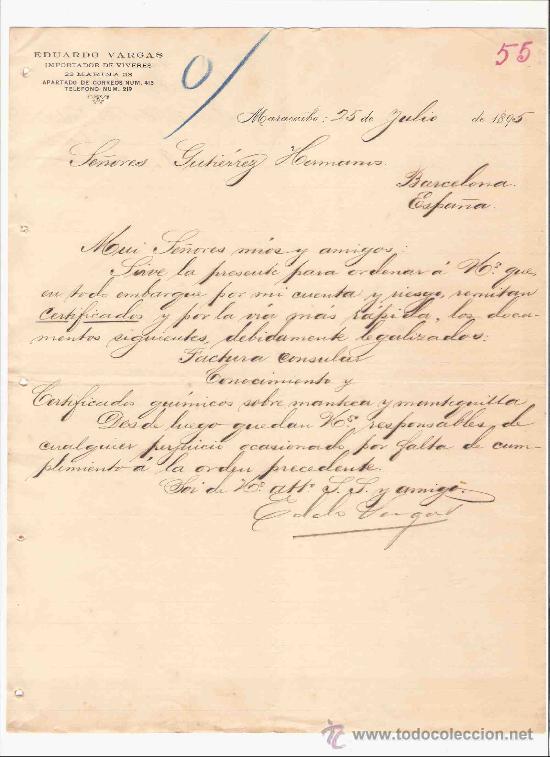 EDUARDO VARGAS
IMPORTADOR DE VIVERES
APARTADO DE CORREOS NUM. 415
TELEFONO NUM. 219
55
Maracaibo: 25 de Julio de 1895
Señores Gutiérrez Hermanos
Barcelona.
España.
Mui Señores mios y amigos:
Sirve la presente para ordenar á Vs. que
en todo embarque por mi cuenta y riesgo, remitan
certificados y por la via más rápida, los docu-
mentos siguientes, debidamente legalizados:
Factura consular
Conocimiento y
Certificados químicos sobre manteca y mantequilla
Desde luego quedan Vs. responsables de
cualquier perjuicio ocasionado por falta de cum-
plimiento á la orden precedente.
Soi de Vs. atto. S. S. y amigo.
Edo Vargas
todocoleccion
www.todocoleccion.net